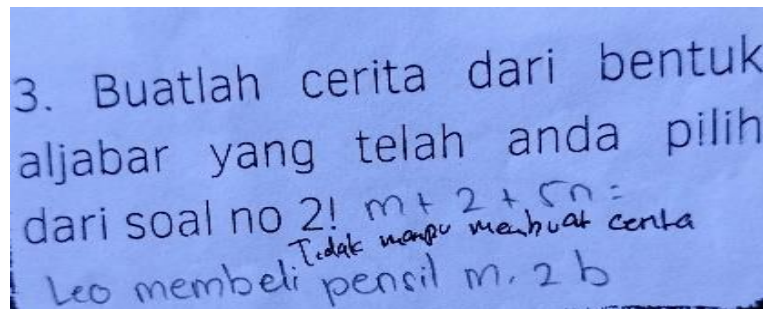 3. Buatlah cerita dari bentuk
aljabar yang telah anda pilih
dari soal no 2! m + 2 + 5n =
Tidak mampu membuat cerita
Leo membeli pensil m. 2 b